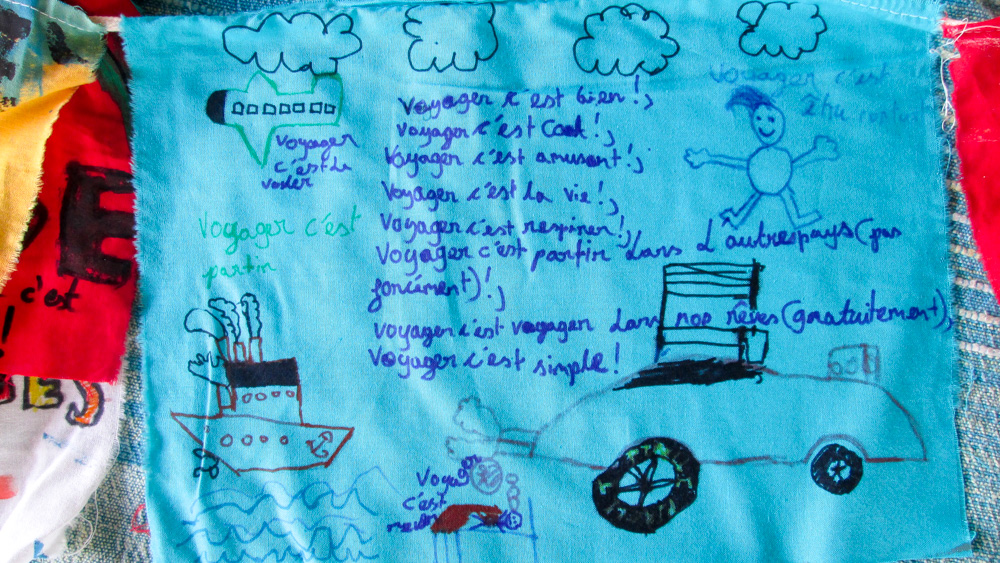 Voyager c'est
Voyager c'est bien !,
Voyager c'est Cool !,
Voyager c'est amusant !,
Voyager c'est la vie !,
Voyager c'est respirer !,
Voyager c'est partir dans d'autres pays (pas
forcément) !,
voyager c'est voyager dans nos rêves (gratuitement),
Voyager c'est simple !
voyager
c'est la
Voyager c'est
partir
Voyager
c'est
c'est
!